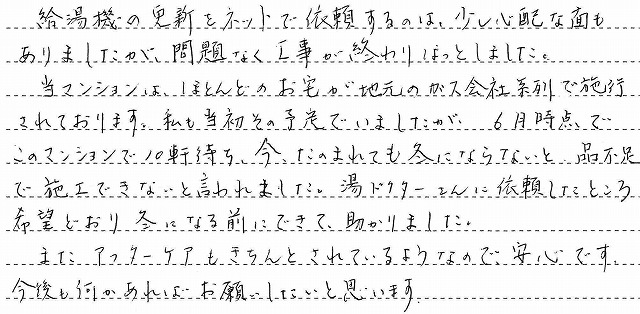 給湯機の更新をネットで依頼するのは、少し心配な面も
ありましたが、問題なく工事が終わりほっとしました。
当マンションは、ほとんどのお宅が地元のガス会社系列で施行
されております。私も当初その予定でいましたが、6月時点で
このマンションで10軒待ち、今、たのまれても冬にならないと品不足
で施工できないと言われました。湯ドクターさんに依頼したところ
希望どおり冬になる前にできて、助かりました。
また、アフターケアもきちんとされているようなので、安心です。
今後も何かあればお願いしたいと思います。